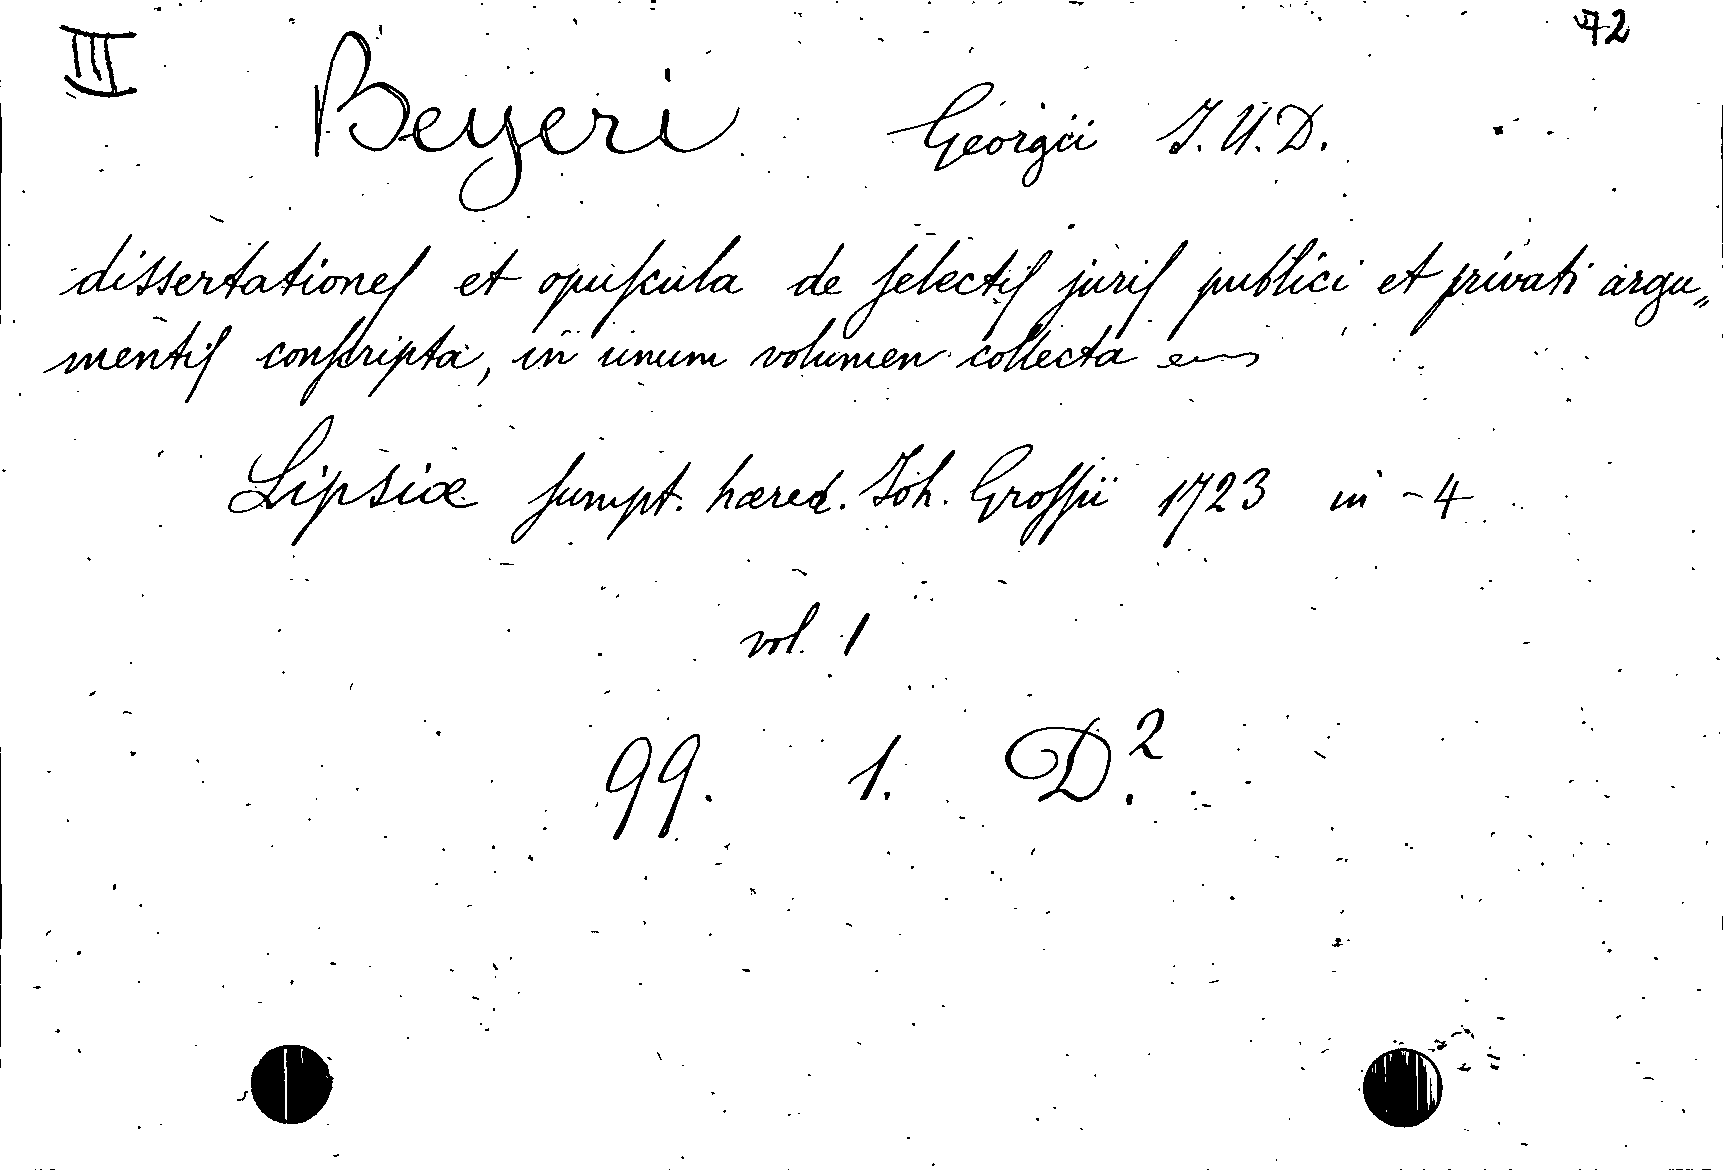 III 72
Beyeri Georgii J.U.D.
dissertationeſ et opuſcula de ſelectiſ juriſ publici et privati argu„
mentiſ conſcripta, in unum volumen collecta
Lipsiæ ſumpt. hæred. Joh. Groſſii 1723 in-4
vol. 1
99. 1. D.²